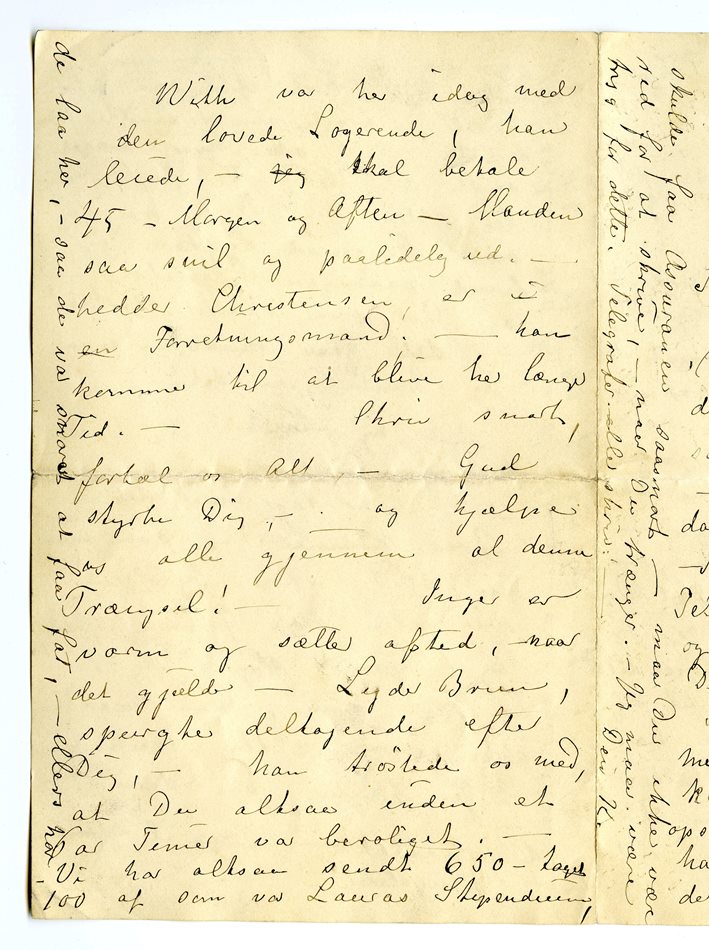 With var her idag med
den lovede Logerende, han
leiede, – jeg skal betale
45 – Morgen og Aften – Manden
saa snil og paalidelig ud. –
hedder Christensen, er i
en Forretningsmand. – han
kommer til at blive her længe
Tid. – Skriv snart,
fortæl os Alt, – Gud
styrke Dig, – og hjælpe
os alle gjennem al denne
Trængsel! – Inger er
varm og sætter afsted, naar
det gjælder – Lygde Bruun,
spurgte deltagende efter
Dig, – han trøstede os med,
at Du altsaa inden et
Par Timer var beroliget. –
Vi har altsaa sendt 650 – taget
100 af som var Lauras Stipendium,
de laa her, – saa de var snarest at faa fat, – ellers har
skulde faa Assurancen saasnart – maa Du ikke være
red for at skrive, – naar Du trænger. – Jeg maa være
for dette. Telegrafer eller skriv! – Din K.